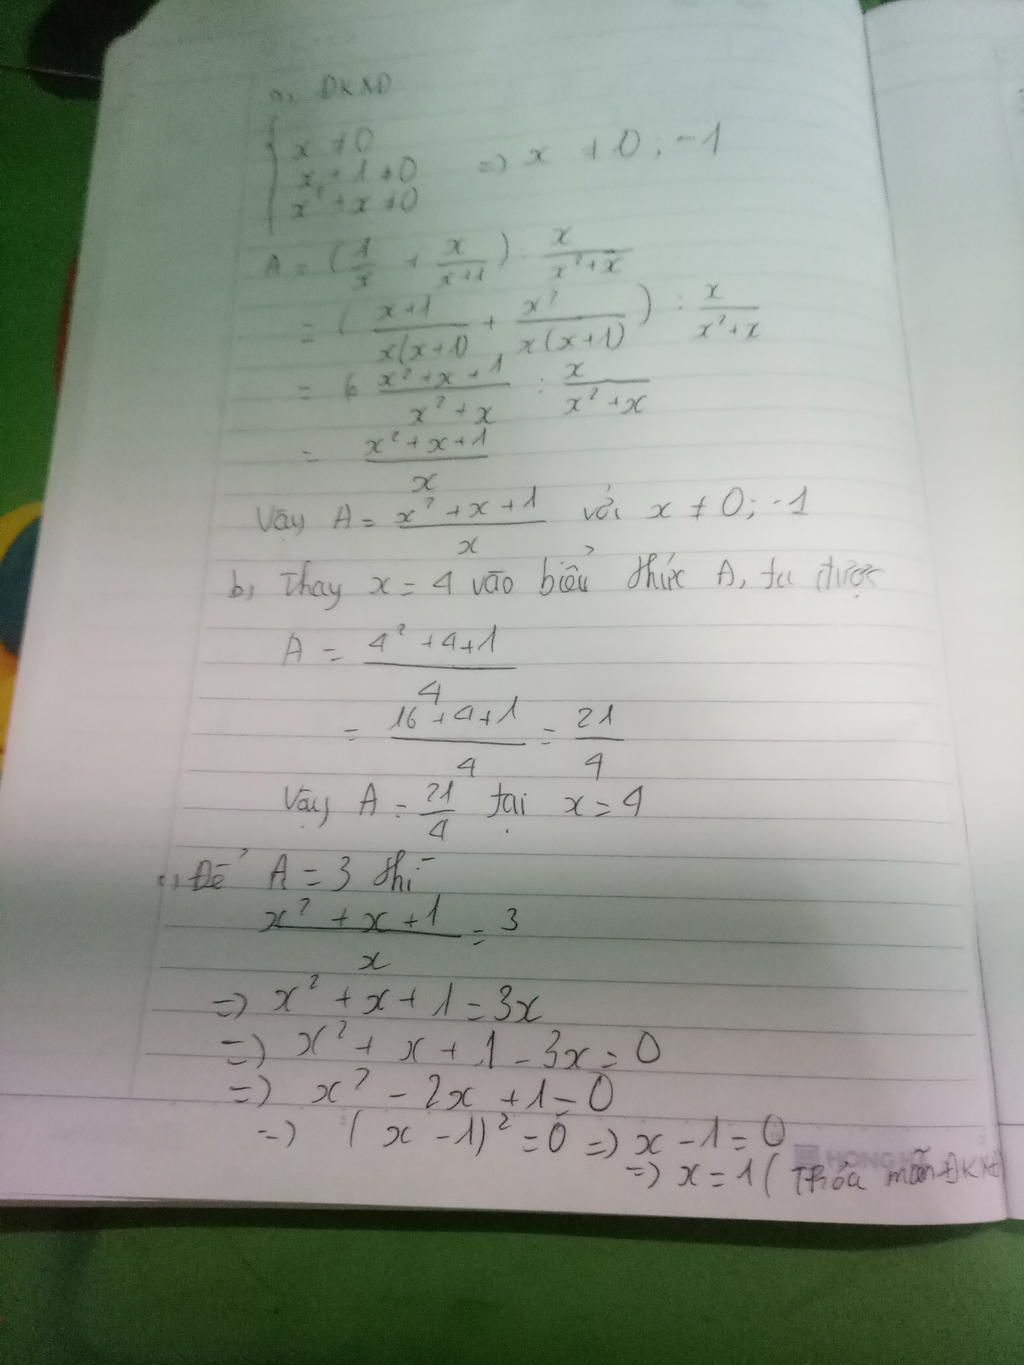 a, ĐKXĐ
x ≠ 0
x + 1 ≠ 0 => x ≠ 0 ; -1
x² + x ≠ 0
A = (1/x + x/(x+1)) : x/(x²+x)
= ((x+1)/(x(x+1)) + x²/(x(x+1))) : x/(x²+x)
= (x²+x+1)/(x²+x) : x/(x²+x)
= (x²+x+1)/x
Vậy A = (x²+x+1)/x với x ≠ 0 ; -1
b, Thay x = 4 vào biểu thức A, ta được
A = (4²+4+1)/4
= (16+4+1)/4 = 21/4
Vậy A = 21/4 tại x = 4
c, Để A = 3 thì
(x²+x+1)/x = 3
=> x² + x + 1 = 3x
=> x² + x + 1 - 3x = 0
=> x² - 2x + 1 = 0
=> (x - 1)² = 0 => x - 1 = 0
=> x = 1 ( Thỏa mãn ĐKXĐ